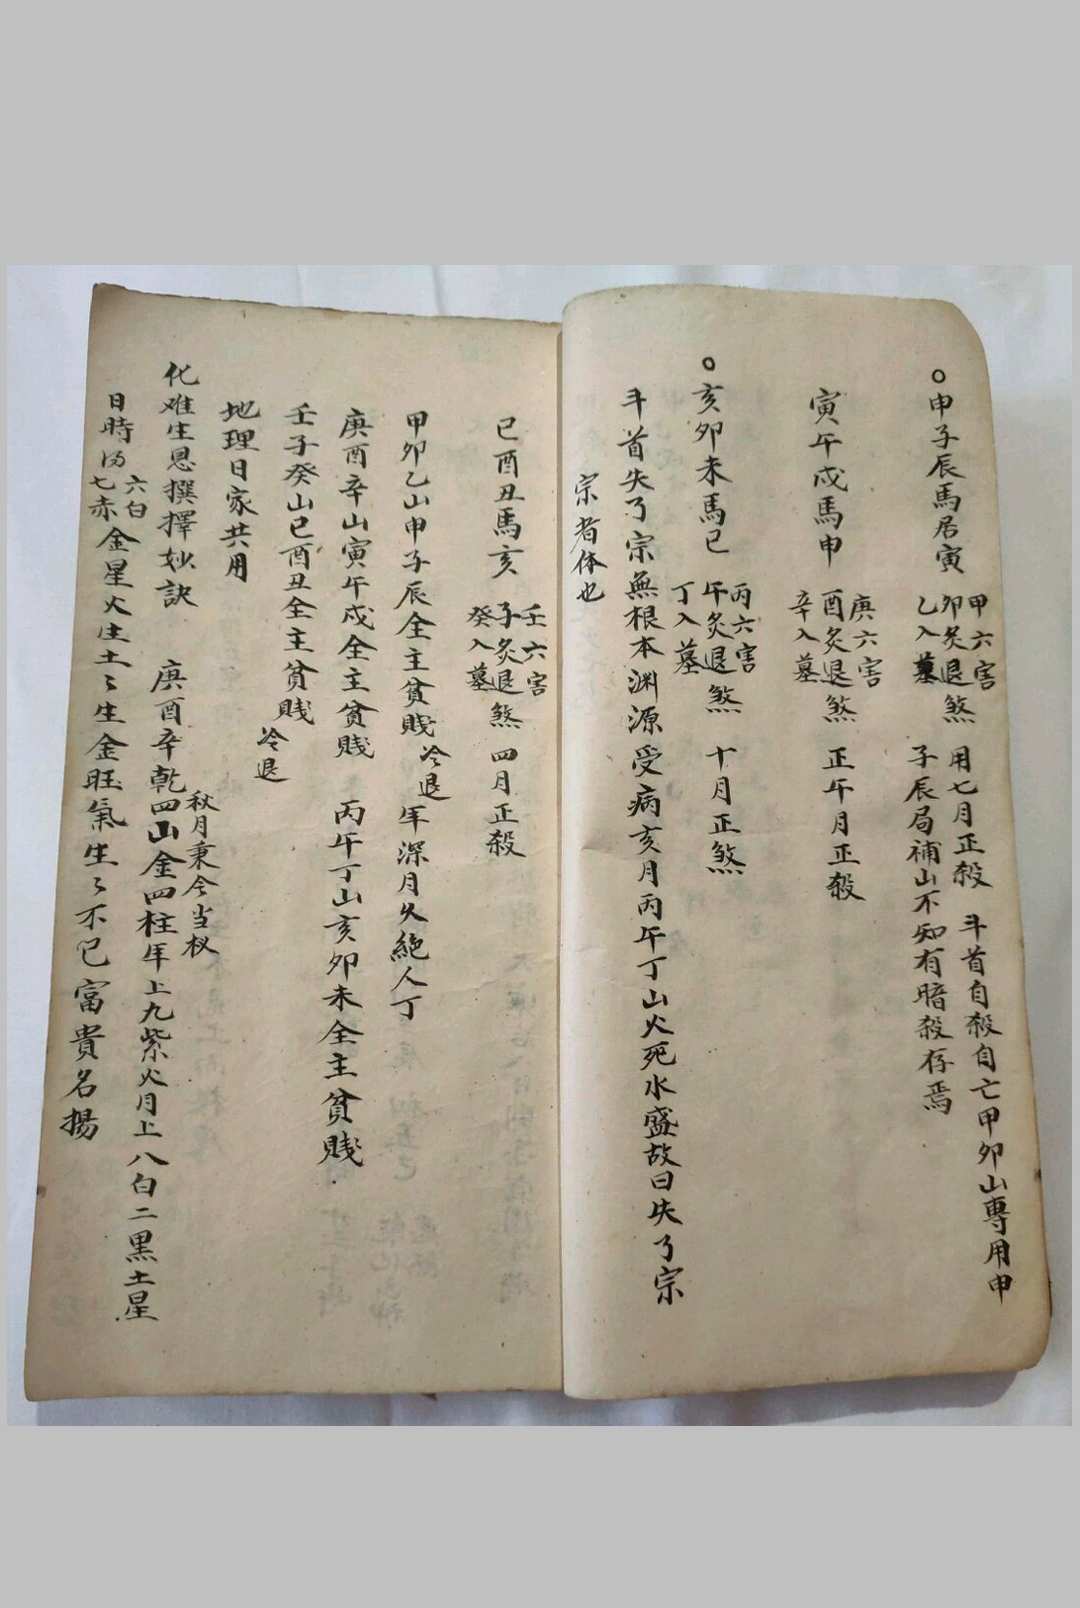 ○申子辰馬居寅
甲六害
卯炙退煞
乙入墓
用七月正殺 斗首自殺自亡甲卯山專用申
子辰局補山不知有暗殺存焉
寅午戌馬申
庚六害
酉炙退煞
辛入墓
正午月正殺
○亥卯未馬已
丙六害
午炙退煞
丁入墓
十月正煞
斗首失了宗無根本渊源受病亥月丙午丁山火死水盛故曰失了宗
宗者体也
已酉丑馬亥
壬六害
子炙退煞
癸入墓
四月正殺
甲卯乙山申子辰全主貧賤冷退年深月久絕人丁
庚酉辛山寅午戌全主貧賤 丙午丁山亥卯未全主貧賤
壬子癸山已酉丑全主貧賤冷退
地理日家共用
化难生恩撰擇妙訣
秋月秉令当权
庚酉辛乾四山金四柱年上九紫火月上八白二黑土星
日時得六白七赤金星火生土々生金旺氣生々不已富貴名揚